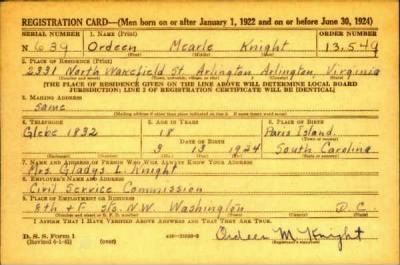 REGISTRATION CARD—(Men born on or after January 1, 1922 and on or before June 30, 1924)
SERIAL NUMBER 1. NAME (Print) ORDER NUMBER
N 639 Ordeen Mcarle Knight 13,549
(First) (Middle) (Last)
2. PLACE OF RESIDENCE (Print)
2331 North Wakefield St. Arlington Arlington, Virginia
(Number and street) (Town, township, village, or city) (County) (State)
[THE PLACE OF RESIDENCE GIVEN ON THE LINE ABOVE WILL DETERMINE LOCAL BOARD
JURISDICTION; LINE 2 OF REGISTRATION CERTIFICATE WILL BE IDENTICAL]
3. MAILING ADDRESS
Same
(Mailing address if other than place indicated on line 2. If same insert word same)
4. TELEPHONE 5. AGE IN YEARS 6. PLACE OF BIRTH
Glebe 1832 18 Paris Island
DATE OF BIRTH (Town or county)
3 13 1924 South Carolina
(Exchange) (Number) (Mo.) (Day) (Yr.) (State or country)
7. NAME AND ADDRESS OF PERSON WHO WILL ALWAYS KNOW YOUR ADDRESS
Mrs. Gladys L. Knight
8. EMPLOYER'S NAME AND ADDRESS
Civil Service Commission
9. PLACE OF EMPLOYMENT OR BUSINESS
8th + F Sts. N.W. Washington D.C.
(Number and street or R. F. D. number) (Town) (County) (State)
I AFFIRM THAT I HAVE VERIFIED ABOVE ANSWERS AND THAT THEY ARE TRUE.
D. S. S. Form 1
(Revised 6-1-42) (over) Ordeen M Knight
(Registrant's signature)